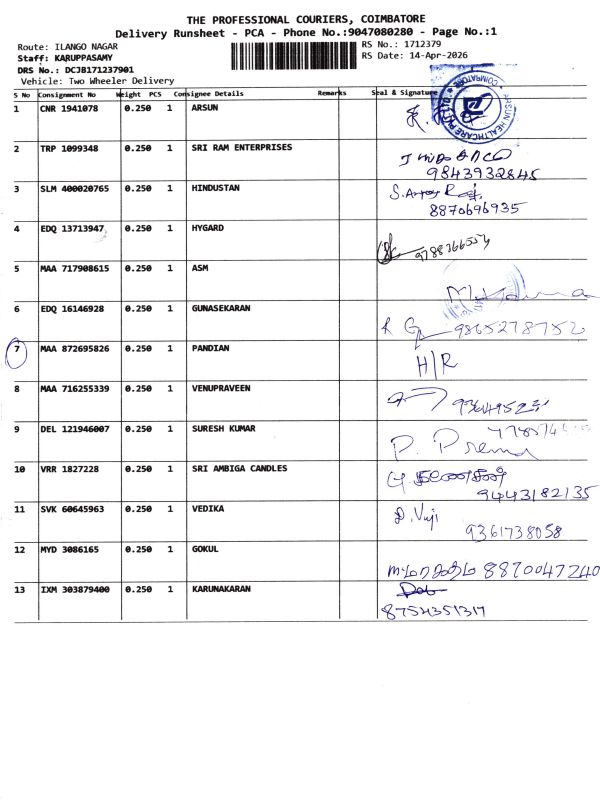 THE PROFESSIONAL COURIERS, COIMBATORE
Delivery Runsheet - PCA - Phone No.:9047080280 - Page No.:1
Route: ILANGO NAGAR
RS No.: 1712379
Staff: KARUPPASAMY
RS Date: 14-Apr-2026
DRS No.: DCJB171237901
Vehicle: Two Wheeler Delivery
S No Consignment No Weight PCS Consignee Details Remarks Seal & Signature
1 CNR 1941078 0.250 1 ARSUN
COIMBATORE
2 TRP 1099348 0.250 1 SRI RAM ENTERPRISES
9843932845
3 SLM 400020765 0.250 1 HINDUSTAN
8870696935
4 EDQ 13713947 0.250 1 HYGARD
5 MAA 717908615 0.250 1 ASM
6 EDQ 16146928 0.250 1 GUNASEKARAN
9865278752
7 MAA 872695826 0.250 1 PANDIAN H/R
8 MAA 716255339 0.250 1 VENUPRAVEEN
9 DEL 121946007 0.250 1 SURESH KUMAR
P. Prema
10 VRR 1827228 0.250 1 SRI AMBIGA CANDLES
9443182135
11 SVK 60645963 0.250 1 VEDIKA
D. Vuji
9361738058
12 MYD 3086165 0.250 1 GOKUL
8870047240
13 IXM 303879400 0.250 1 KARUNAKARAN
8754351317